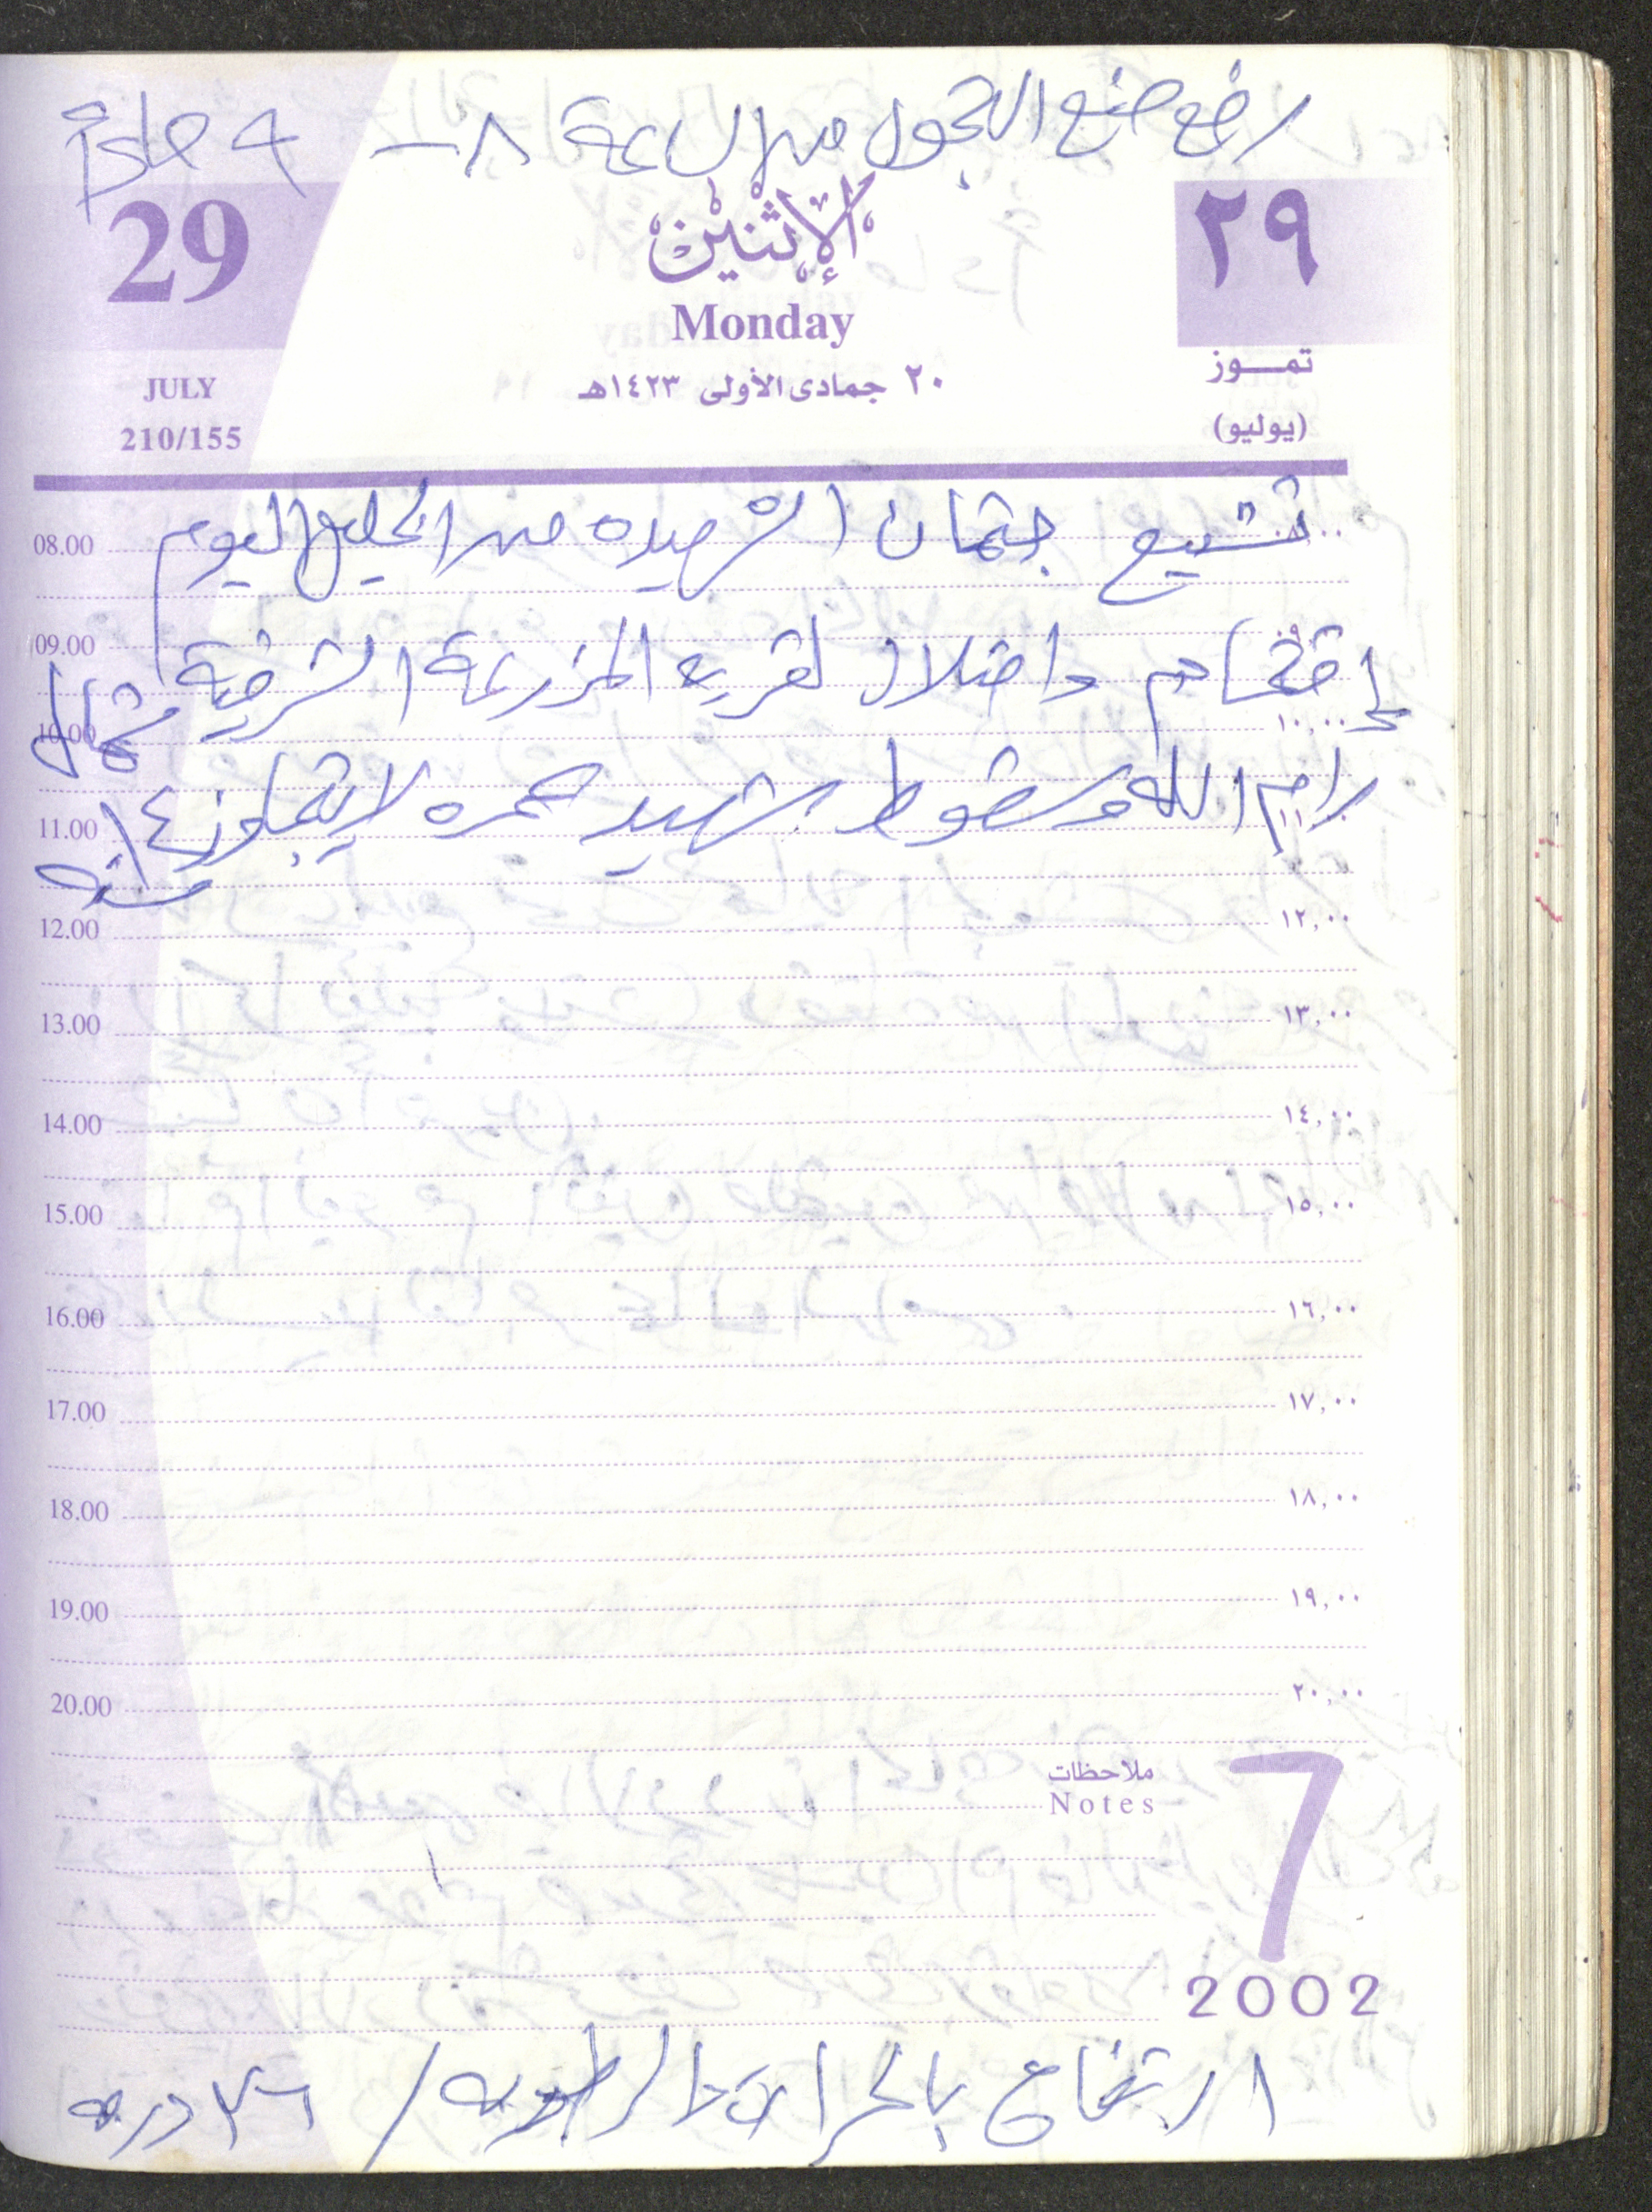 رفع منع التجول من الساعة ٨ – ٩ مساءً
29
الإثنين
٢٩
Monday
تمـــوز
JULY
٢٠ جمادى الأولى ١٤٢٣هـ
(يوليو)
210/155
تشييع جثمان الشهيده من الخليل اليوم
08.00
اقتحام واحتلال لقريه المزرعة الشرقية شمال
09.00
10.00 ١٠,٠٠
رام الله وسقوط شهيد عمره لا يتجاوز ١٤
11.00
سنه
12.00 ١٢,٠٠
13.00 ١٣,٠٠
14.00 ١٤,٠٠
15.00 ١٥,٠٠
16.00 ١٦,٠٠
17.00 ١٧,٠٠
18.00 ١٨,٠٠
19.00 ١٩,٠٠
20.00 ٢٠,٠٠
ملاحظات
Notes
7
2002
ارتفاع بالحرارة والرطوبه / ٣٦ درجه